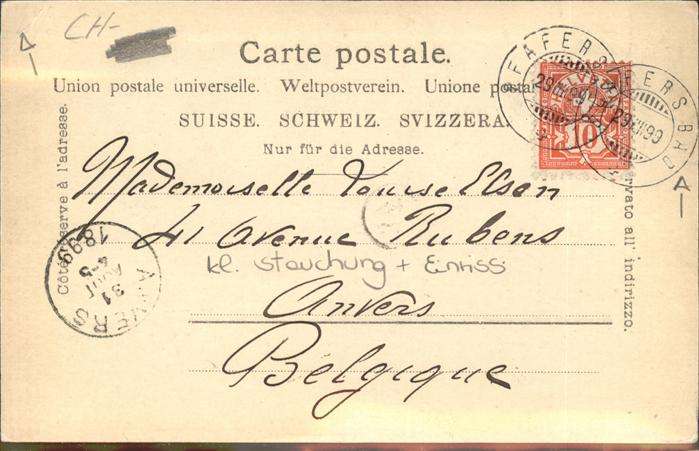 CH-
Carte postale.
Union postale universelle. Weltpostverein. Unione postale
SUISSE. SCHWEIZ. SVIZZERA.
Nur für die Adresse.
Côté réservé à l'adresse.
all' indirizzo.
PFAFERS
29 VIII 99
10
29 VIII 99
Mademoiselle Louise Elsen
41 avenue Rubens
kl. Stauchung + Einriss
Anvers
Belgique
ANVERS
31
AOUT
4-5
1899